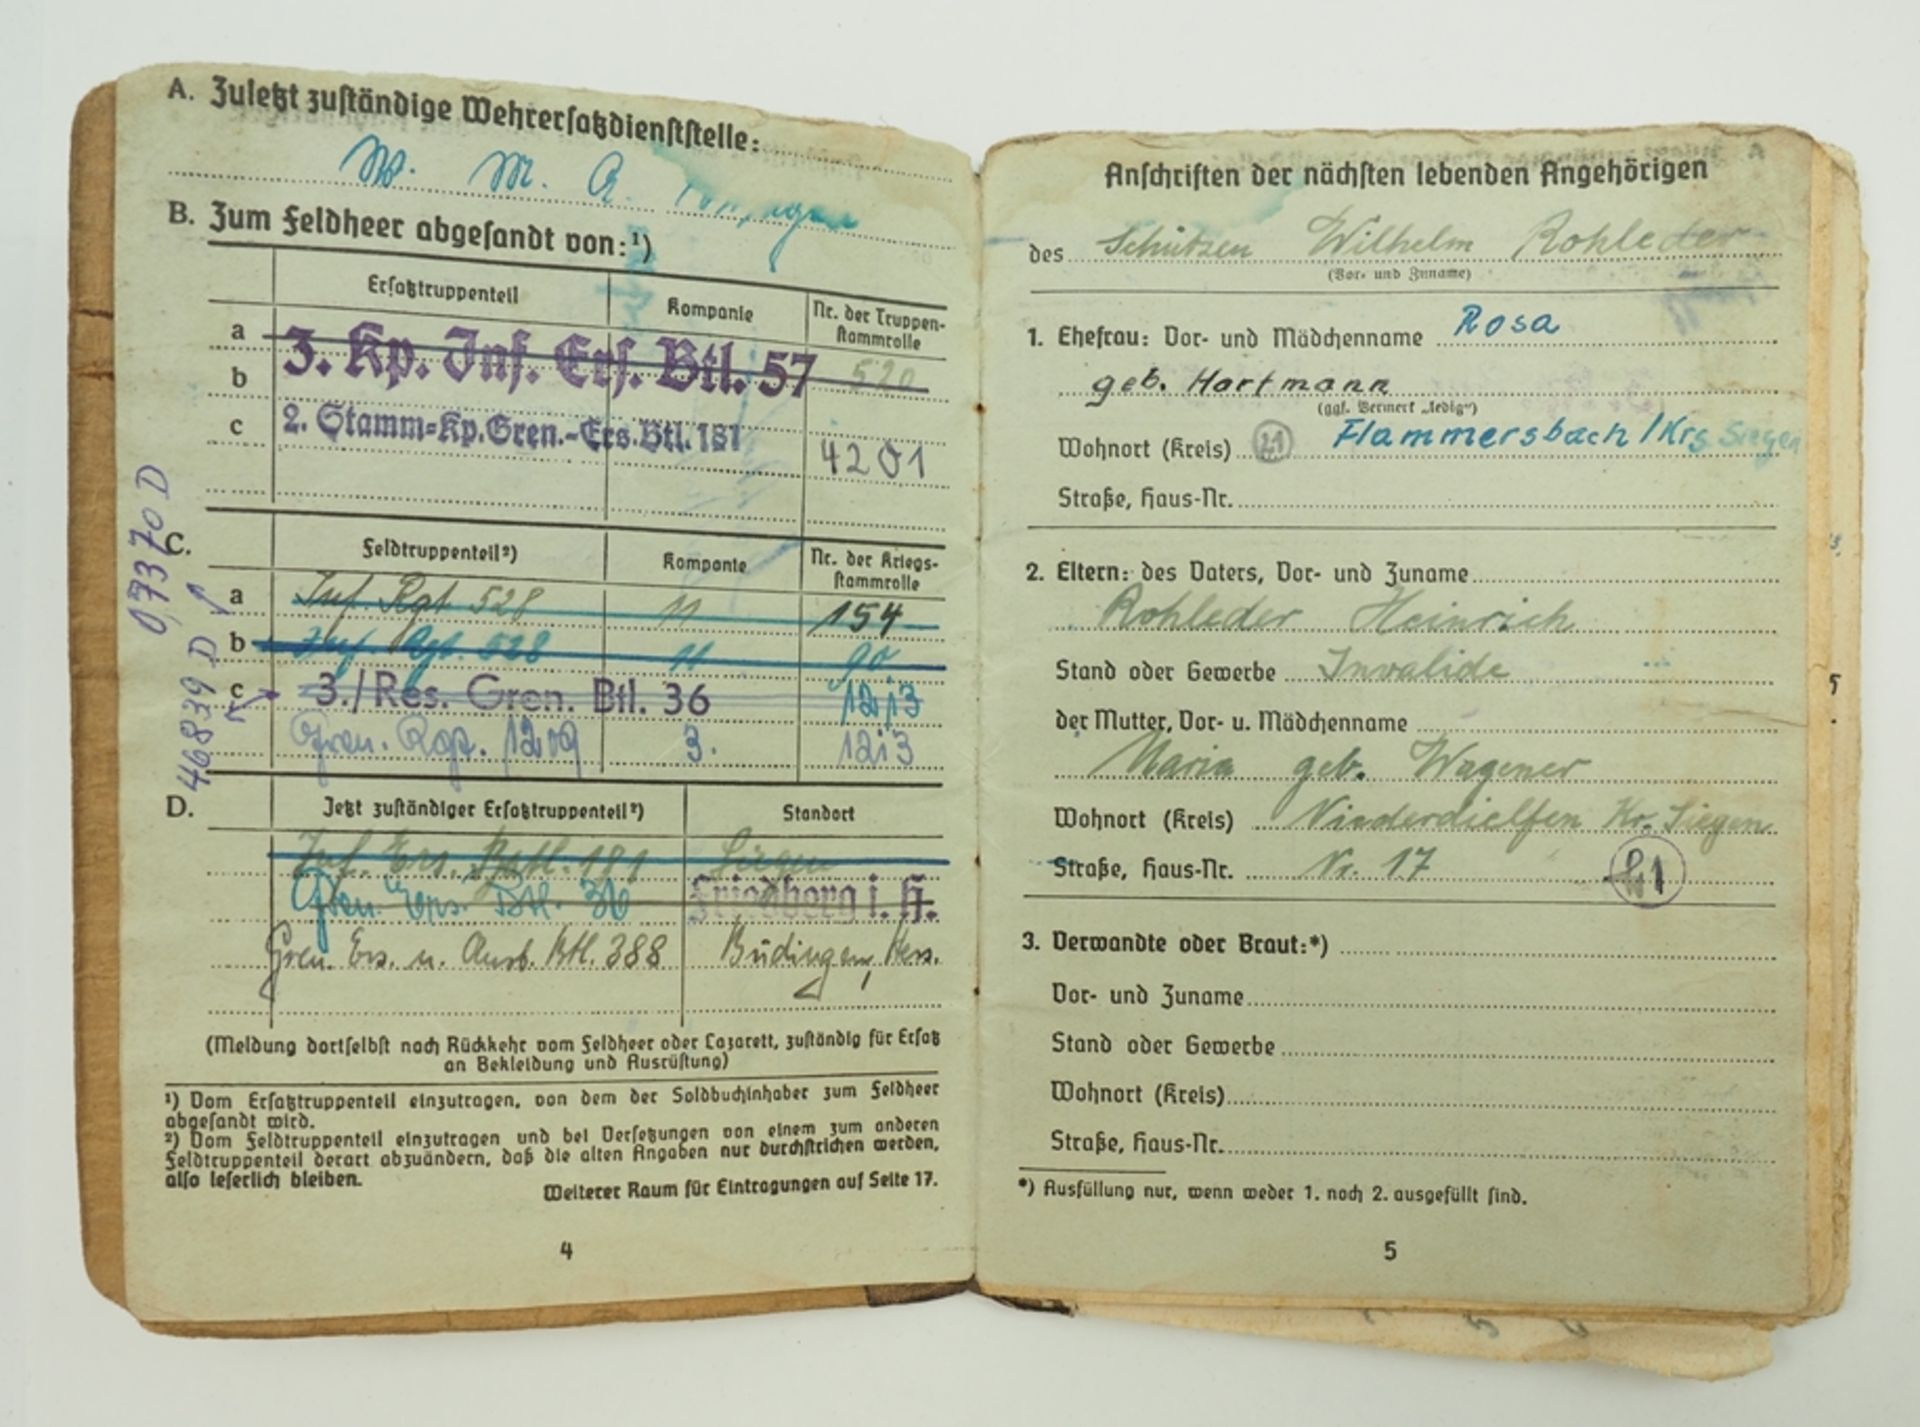 A. Zuletzt zuständige Wehrersatzdienststelle:
W. M. A.
B. Zum Feldheer abgesandt von:¹)
Ersatztruppenteil Kompanie Nr. der Truppen-
stammrolle
a 3. Kp. Inf. Ers. Btl. 57 520
b
c 2. Stamm-Kp. Gren.-Ers. Btl. 181 4201
C.
Feldtruppenteil²) Kompanie Nr. der Kriegs-
stammrolle
a Inf. Rgt 528 11 154
b Inf. Rgt. 528 11 90
c 3./Res. Gren. Btl. 36 1213
Gren. Rgt. 1209 3. 1213
07370 D
46839 D
D.
Jetzt zuständiger Ersatztruppenteil²) Standort
Inf. Ers. Batl. 181 Siegen
Gren. Ers. Btl. 36 Friedberg i. H.
Gren. Ers. u. Ausb. Btl. 388 Büdingen, Hess.
(Meldung dortselbst nach Rückkehr vom Feldheer oder Lazarett, zuständig für Ersatz
an Bekleidung und Ausrüstung)
¹) Vom Ersatztruppenteil einzutragen, von dem der Soldbuchinhaber zum Feldheer
abgesandt wird.
²) Vom Feldtruppenteil einzutragen und bei Versetzungen von einem zum anderen
Feldtruppenteil derart abzuändern, daß die alten Angaben nur durchstrichen werden,
also leserlich bleiben.
Weiterer Raum für Eintragungen auf Seite 17.
4
Anschriften der nächsten lebenden Angehörigen
des Schützen Wilhelm Rohleder
(Vor- und Zuname)
1. Ehefrau: Vor- und Mädchenname Rosa
geb. Hartmann
(ggf. Vermerk „ledig“)
Wohnort (Kreis) 21 Flammersbach/Krs Siegen
Straße, Haus-Nr.
2. Eltern: des Vaters, Vor- und Zuname
Rohleder Heinrich
Stand oder Gewerbe Invalide
der Mutter, Vor- u. Mädchenname
Maria geb. Wagener
Wohnort (Kreis) Niederdielfen Kr. Siegen
Straße, Haus-Nr. Nr. 17 21
3. Verwandte oder Braut:*)
Vor- und Zuname
Stand oder Gewerbe
Wohnort (Kreis)
Straße, Haus-Nr.
*) Ausfüllung nur, wenn weder 1. noch 2. ausgefüllt sind.
5